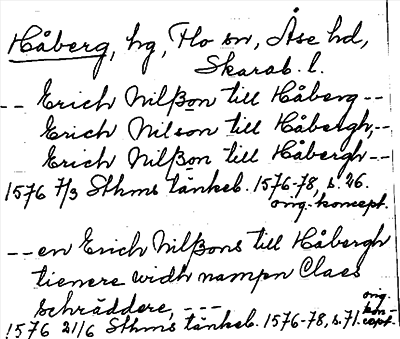 Håberg, hg, Flo sn, Åse hd,
Skarab. l.
-- Erich Nilßon till Håberg --
Erich Nilson till Håbergh,--
Erich Nilßon till Håbergh --
1576 7/3 Sthms tänkeb. 1576-78, s. 26.
orig.-koncept.
-- en Erich Nilßons till Håbergh
tienere widh nampn Claes
Schräddere, ---
1576 21/6 Sthms tänkeb. 1576-78, s. 71. orig.
kon-
cept.